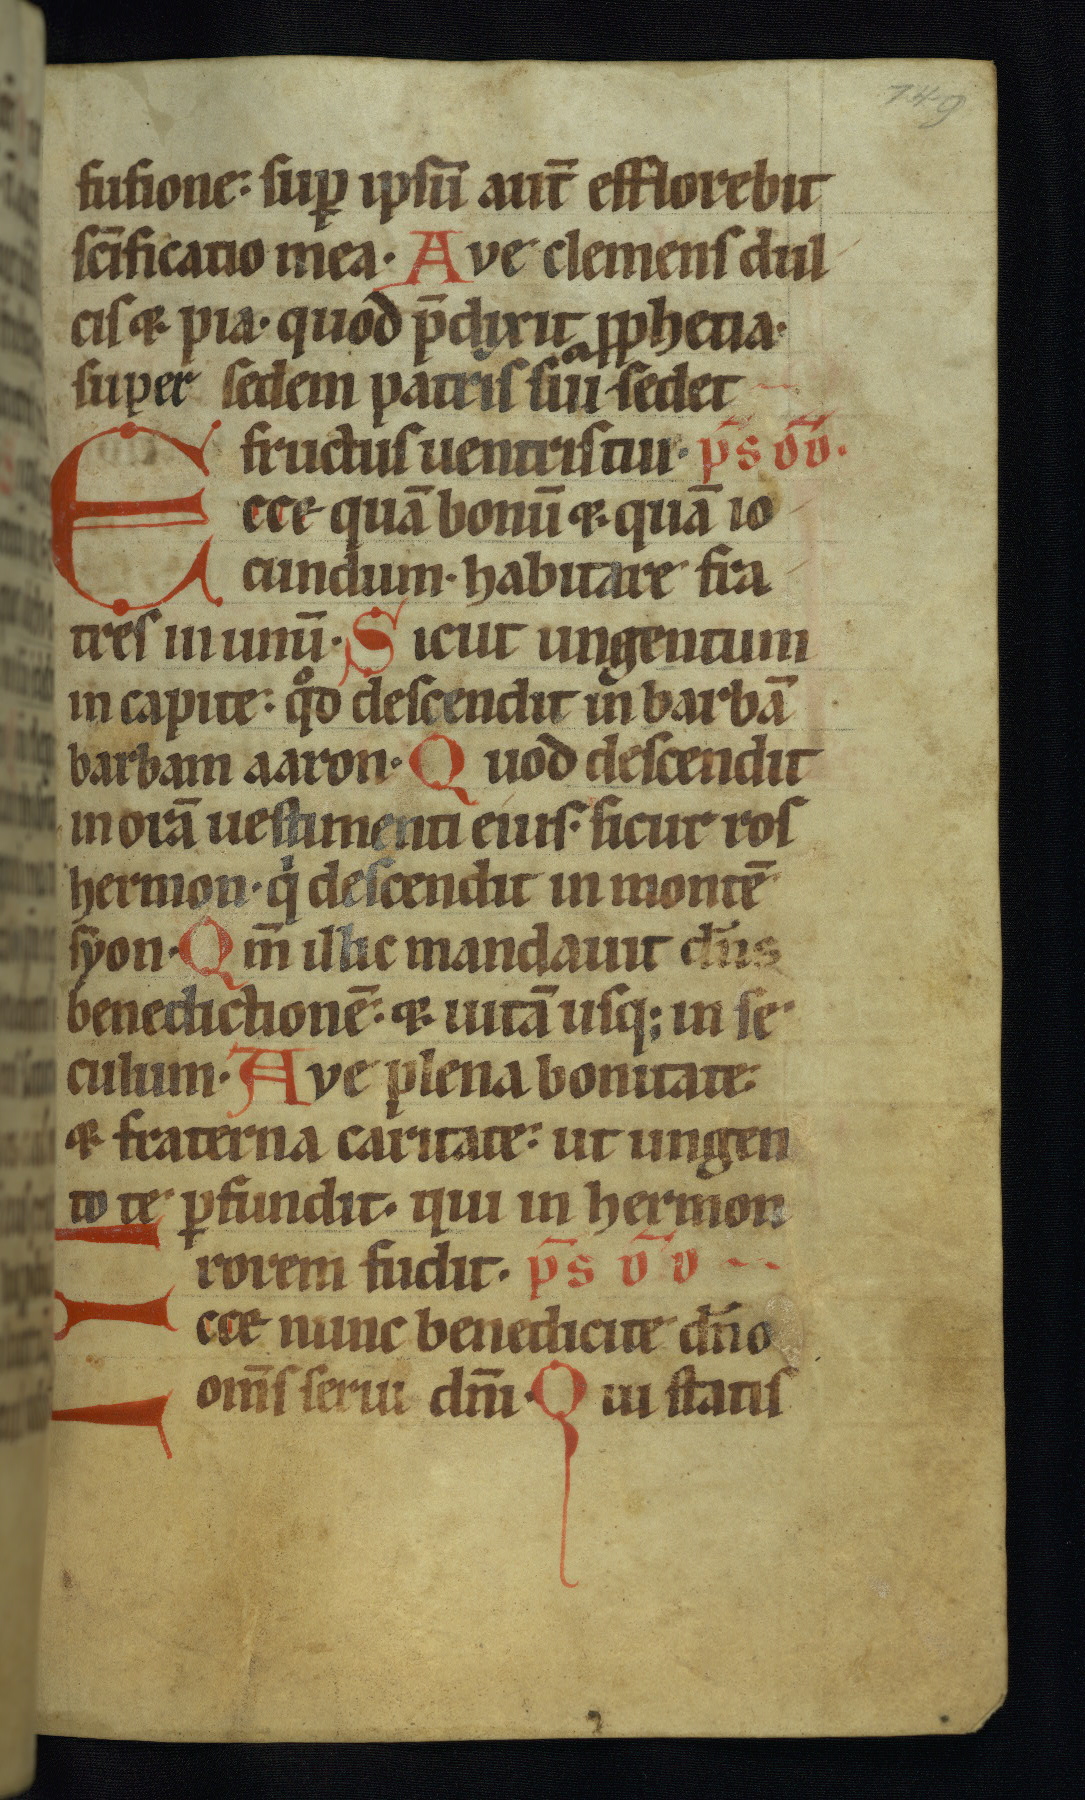 149
fusione: sup̱ ipsū aut̄ efflorebit
scīficatio mea. Ave clemens dul
cis ꝛ pia. quod p̄dixit ꝓphetia.
super sedem patris sui sedet
fructus uentris tui. p̄s v̄v̄.
Ecce quā bonū ꝛ quā io
cundum. habitare fra
tres in unū. Sicut ungentum
in capite: qͦd descendit in barbā
barbam aaron. Quod descendit
in orā uestimenti eius. sicut ros
hermon. qͥ descendit in montē
syon. Qm̄ illic mandauit dn̄s
benedictionē: ꝛ uitā usqꝫ in se
culum. Ave plena bonitate:
ꝛ fraterna caritate: ut ungen
to te ꝑfundit. qui in hermon
rorem fudit. p̄s v̄ v
Ecce nunc benedicite dn̄o
om̄s serui dm̄i. Qui statis